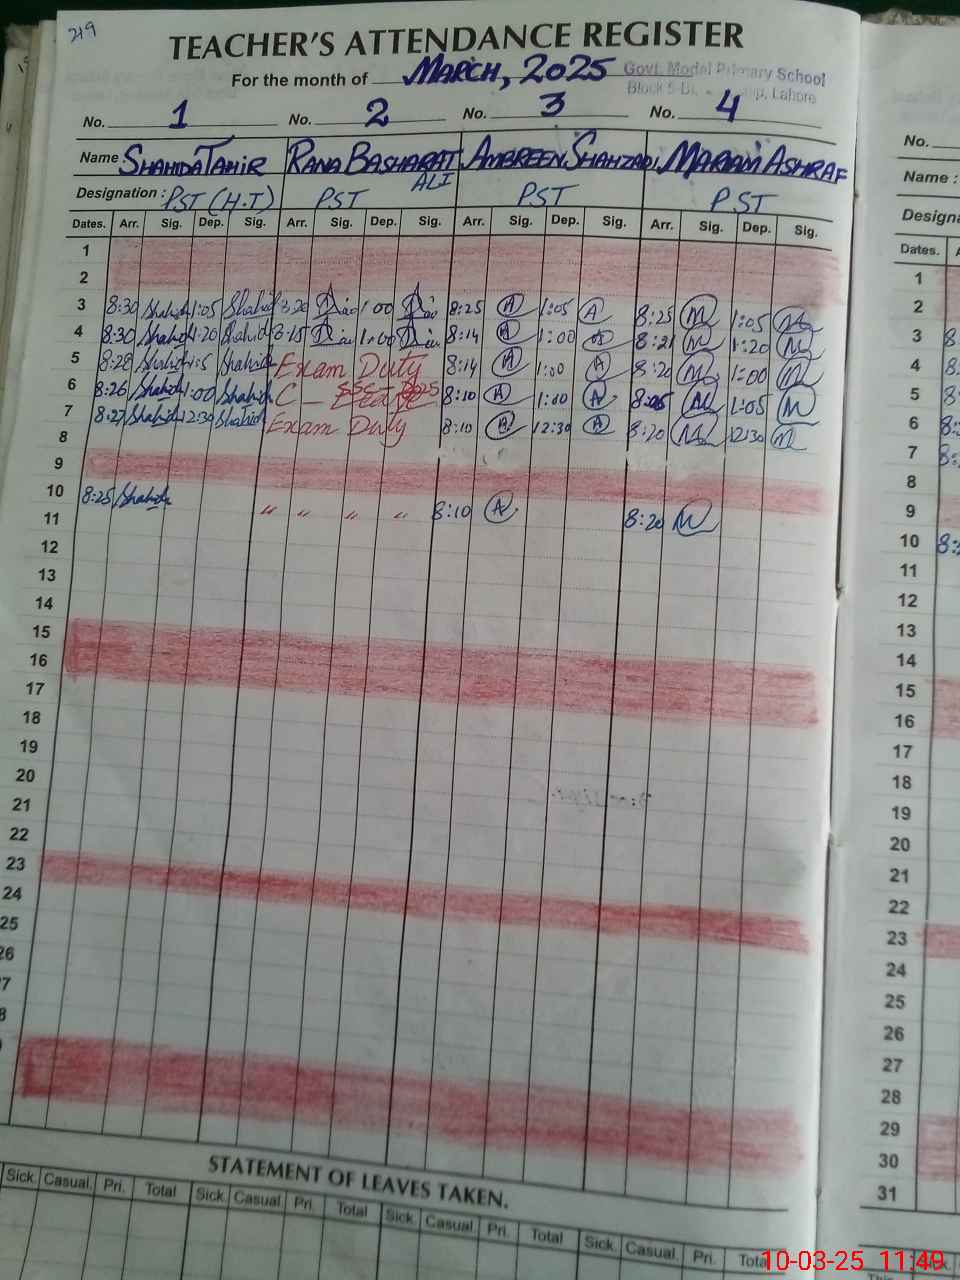 219
TEACHER'S ATTENDANCE REGISTER
For the month of MARCH, 2025
Govt. Model Primary School
Lahore
No. 1 No. 2 No. 3 No. 4
Name : SHAHIDA TAHIR RANA BASHARAT ALI AMBREEN SHAHZADI MARIAM ASHRAF
Designation : PST (H.T) PST PST PST
Dates. Arr. Sig. Dep. Sig. Arr. Sig. Dep. Sig. Arr. Sig. Dep. Sig. Arr. Sig. Dep. Sig.
1
2
3 8:30 Shahid 1:05 Shahid 1:00 8:25 A 1:05 A 8:25 M 1:05 M
4 8:30 Shahid 1:20 Shahid 8:15 1:00 8:14 A 1:00 A 8:21 M 1:20 M
5 8:28 Shahid 1:5 Shahid Exam Duty 8:14 A 1:00 A 8:20 M 1:00 M
6 8:26 Shahid 1:00 Shahid C - 8:10 A 1:00 A M 1:05 M
7 8:27 Shahid 12:30 Shahid Exam Duty 8:10 A 12:30 A 8:20 M 12:30 M
8
9
10 8:25 Shahid " " " " 8:10 A 8:20 M
11
12
13
14
15
16
17
18
19
20
21
22
23
24
25
26
7
8
STATEMENT OF LEAVES TAKEN.
Sick. Casual. Pri. Total Sick. Casual. Pri. Total Sick. Casual. Pri. Total Sick. Casual. Pri. Total
No.
Name :
Designa
Dates.
1
2
3 8:
4 8:
5 8:
6 8:
7 8:
8
9
10 8:
11
12
13
14
15
16
17
18
19
20
21
22
23
24
25
26
27
28
29
30
31
10-03-25 11:49